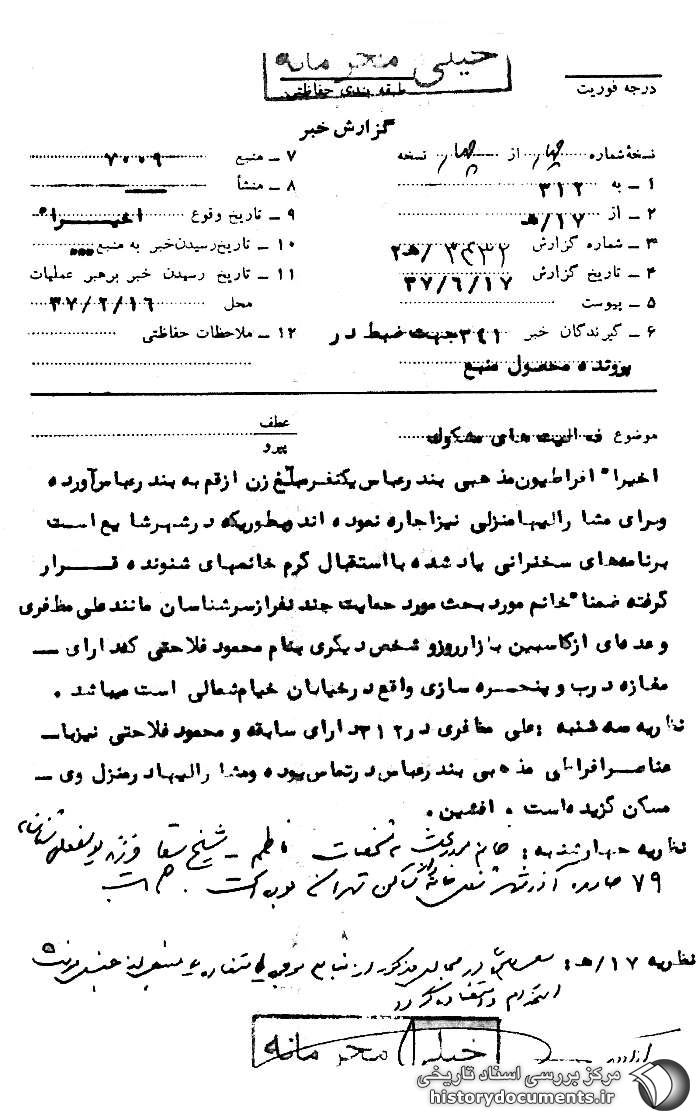 خیلی محرمانه
طبقه بندی حفاظتی
درجه فوریت
گزارش خبر
نسخهٔ شماره چهار از چهار نسخه
۱ ـ به ۳۱۲
۲ ـ از ۱۷/ه‍
۳ ـ شماره گزارش ۳۴۳۲/ه‍۲
۴ ـ تاریخ گزارش ۳۷/۶/۱۷
۵ ـ پیوست
۶ ـ گیرندگان خبر ۳۴۱جهت ضبط در
پرونده محصول منبع
۷ ـ منبع ۷۰۰۹
۸ ـ منشأ
۹ ـ تاریخ وقوع اخیرا"
۱۰ ـ تاریخ رسیدن خبر به منبع
۱۱ ـ تاریخ رسیدن خبر برهبر عملیات
محل ۳۷/۶/۱۶
۱۲ ـ ملاحظات حفاظتی
موضوع فعالیت های مشکوک
عطف
پیرو
اخیرا" افراطیون مذهبی بندرعباس یکنفر مبلغ زن ازقم به بندرعباس آورده
وبرای مشارالیها منزلی نیز اجاره نموده اند بطوریکه در شهر شایع است
برنامه های سخنرانی یاد شده با استقبال گرم خانمهای شنونده قرار
گرفته ضمنا" خانم مورد بحث مورد حمایت چند نفر از سرشناسان مانند علی مظفری
وعده ای از کاسبین بازار روز و شخص دیگری بنام محمود فلاحتی که دارای ـ
مغازه درب و پنجره سازی واقع در خیابان خیام شمالی است میباشد .
نظریه سه شنبه : علی مظفری در ۳۱۲ دارای سابقه و محمود فلاحتی نیز با ـ
عناصر افراطی مذهبی بندرعباس در تماس بوده و مشارالیها در منزل وی ـ
مسکن گزیده است . افشین .
نظریه چهارشنبه : خانم مورد بحث مشخصات فاطمه ـ شیخ سقا فرزند ابوالفضل
۷۹ صادره شغل خانه دار ساکن تهران
نظریه ۱۷/ه‍ : در مجالس مذکور از
خیلی محرمانه
مرکز بررسی اسناد تاریخی
historydocuments.ir